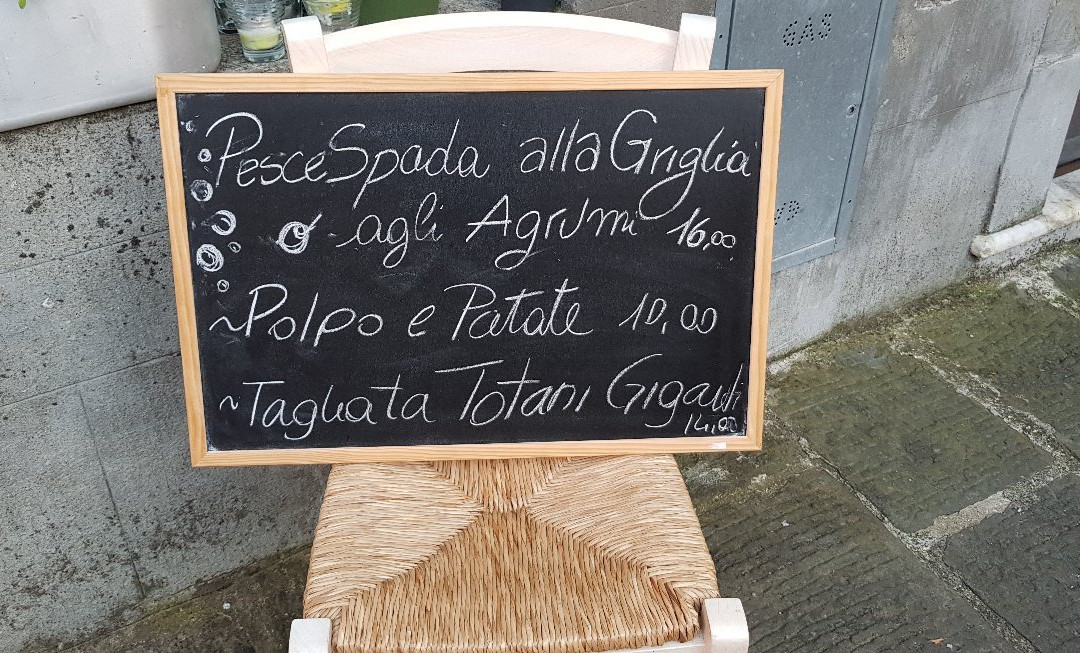 GAS
Pesce Spada alla Griglia
agli Agrumi 16,00
~Polpo e Patate 10,00
~Tagliata Totani Giganti
14,00